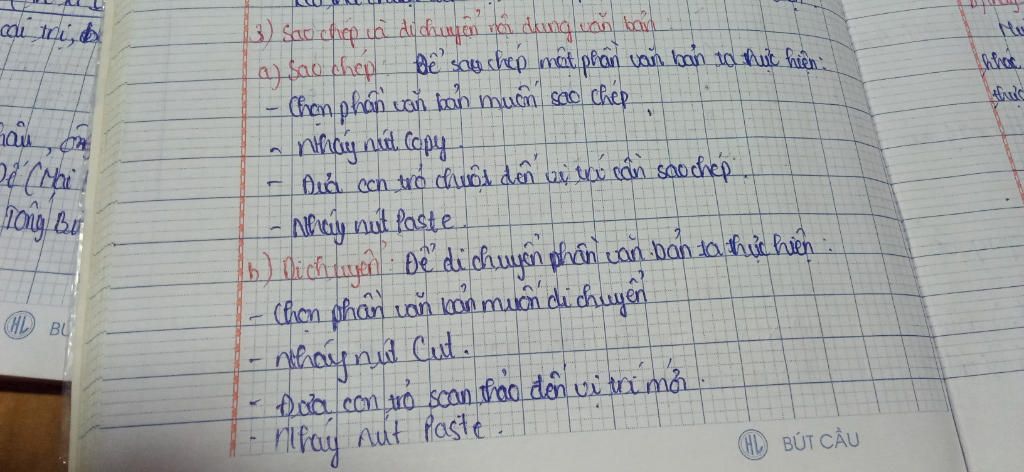 3) Sao chép và di chuyển nội dung văn bản
a) Sao chép: Để sao chép một phần văn bản ta thực hiện:
- Chọn phần văn bản muốn sao chép
- Nháy nút Copy.
- Đưa con trỏ chuột đến vị trí cần sao chép.
- Nháy nút Paste.
b) Di chuyển: Để di chuyển phần văn bản ta thực hiện:
- Chọn phần văn bản muốn di chuyển
- Nháy nút Cut.
- Đưa con trỏ soạn thảo đến vị trí mới.
- Nháy nút Paste.
HL BÚT CÂU
HL BÚ